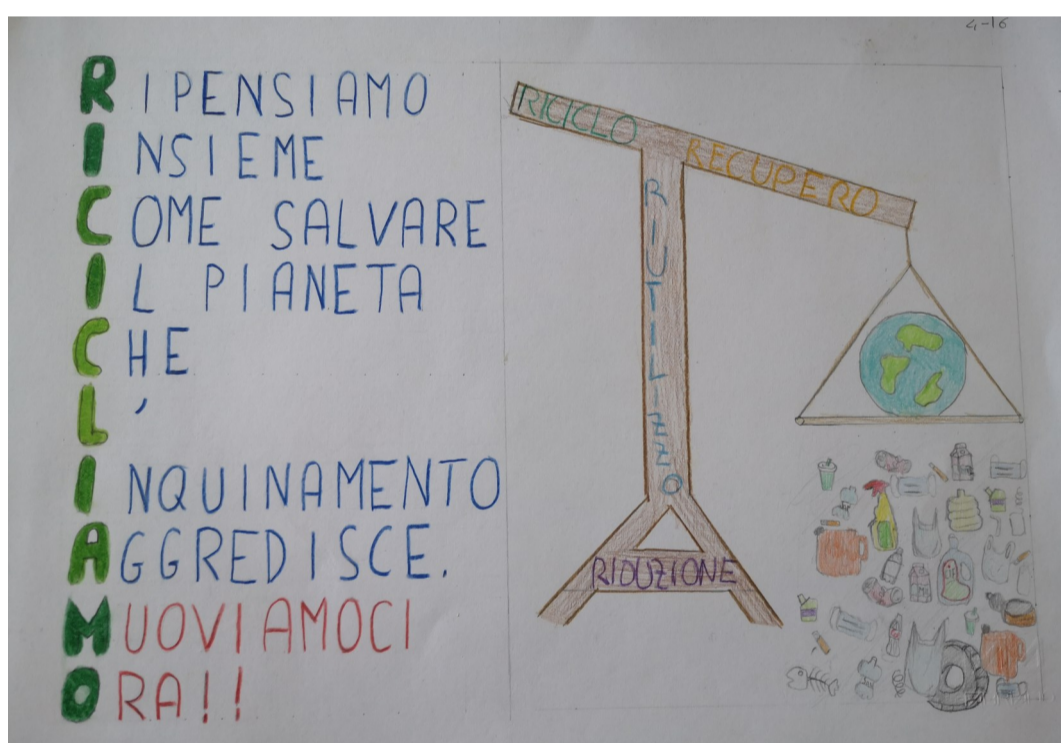 4-16
RIPENSIAMO
INSIEME
COME SALVARE
IL PIANETA
CHE
L'
INQUINAMENTO
AGGREDISCE.
MUOVIAMOCI
ORA!!
RICICLO
RECUPERO
RIUTILIZZO
RIDUZIONE